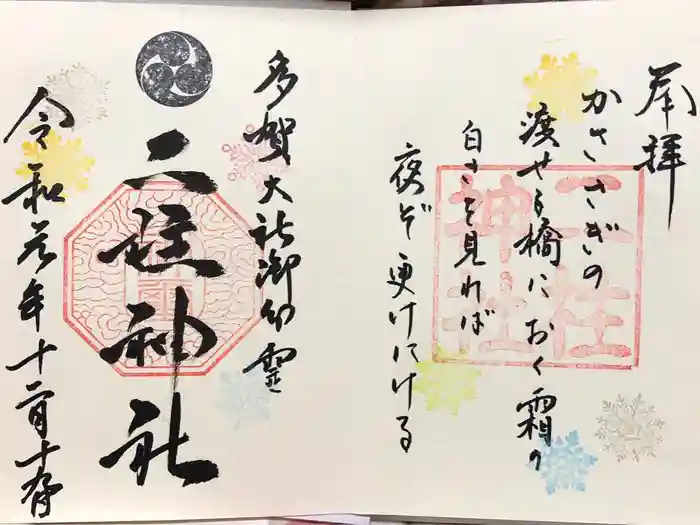 奉拝
かささぎの
渡せる橋におく霜の
白きを見れば
夜ぞ更けにける
二柱
神社
多賀大社御分霊
二柱神社
令和元年十二月十五日